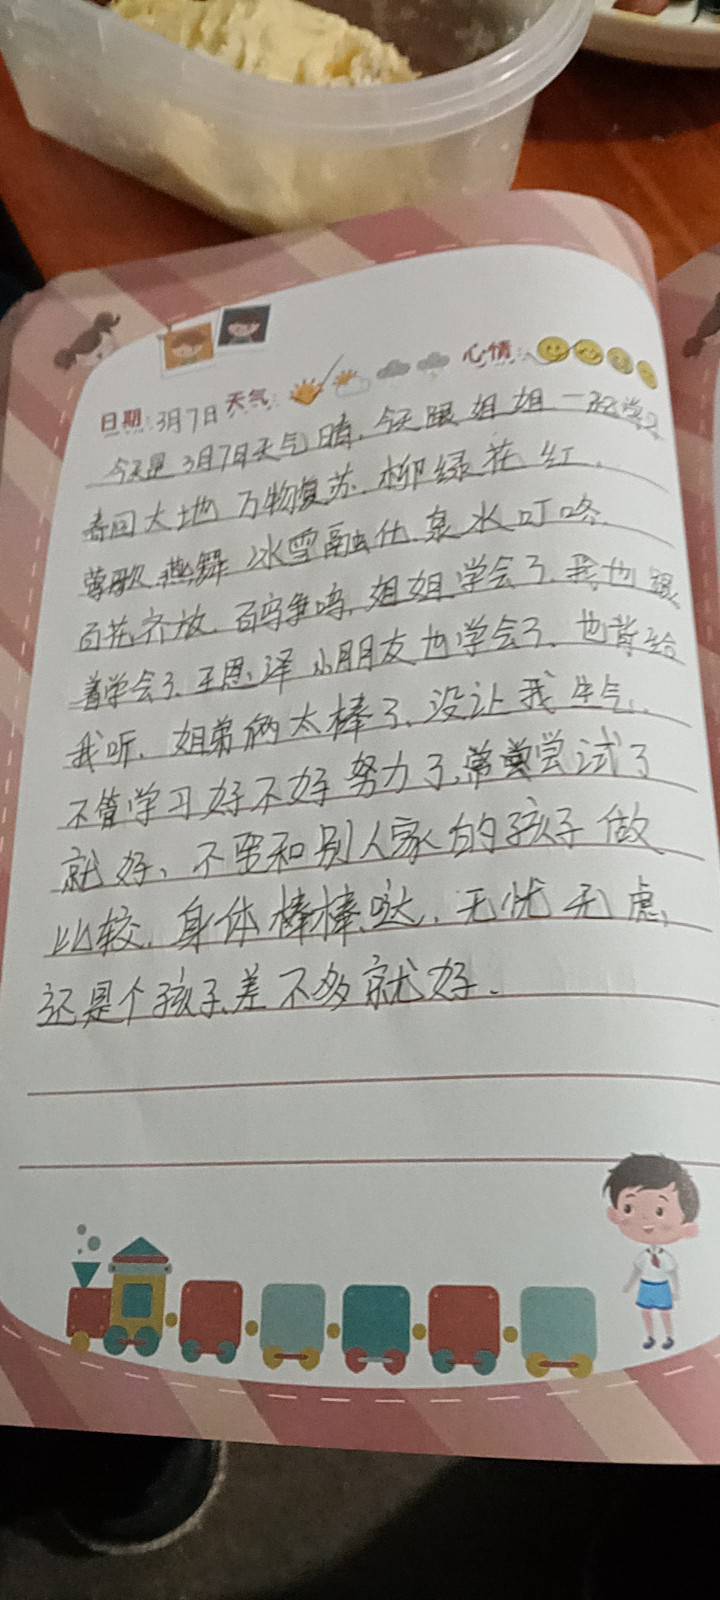 日期:3月7日 天气: 心情:
今天是3月7日天气晴.今天跟姐姐一起学习
春回大地 万物复苏.柳绿花红.
莺歌燕舞 冰雪融化.泉水叮咚.
百花齐放.百鸟争鸣.姐姐学会了.我也跟
着学会了.王恩泽小朋友也学会了.也背给
我听.姐弟俩太棒了.没让我生气.
不管学习好不好 努力了.尝试了
就好、不要和别人家的孩子做
比较.身体棒棒哒.无忧无虑,
还是个孩子.差不多就好.